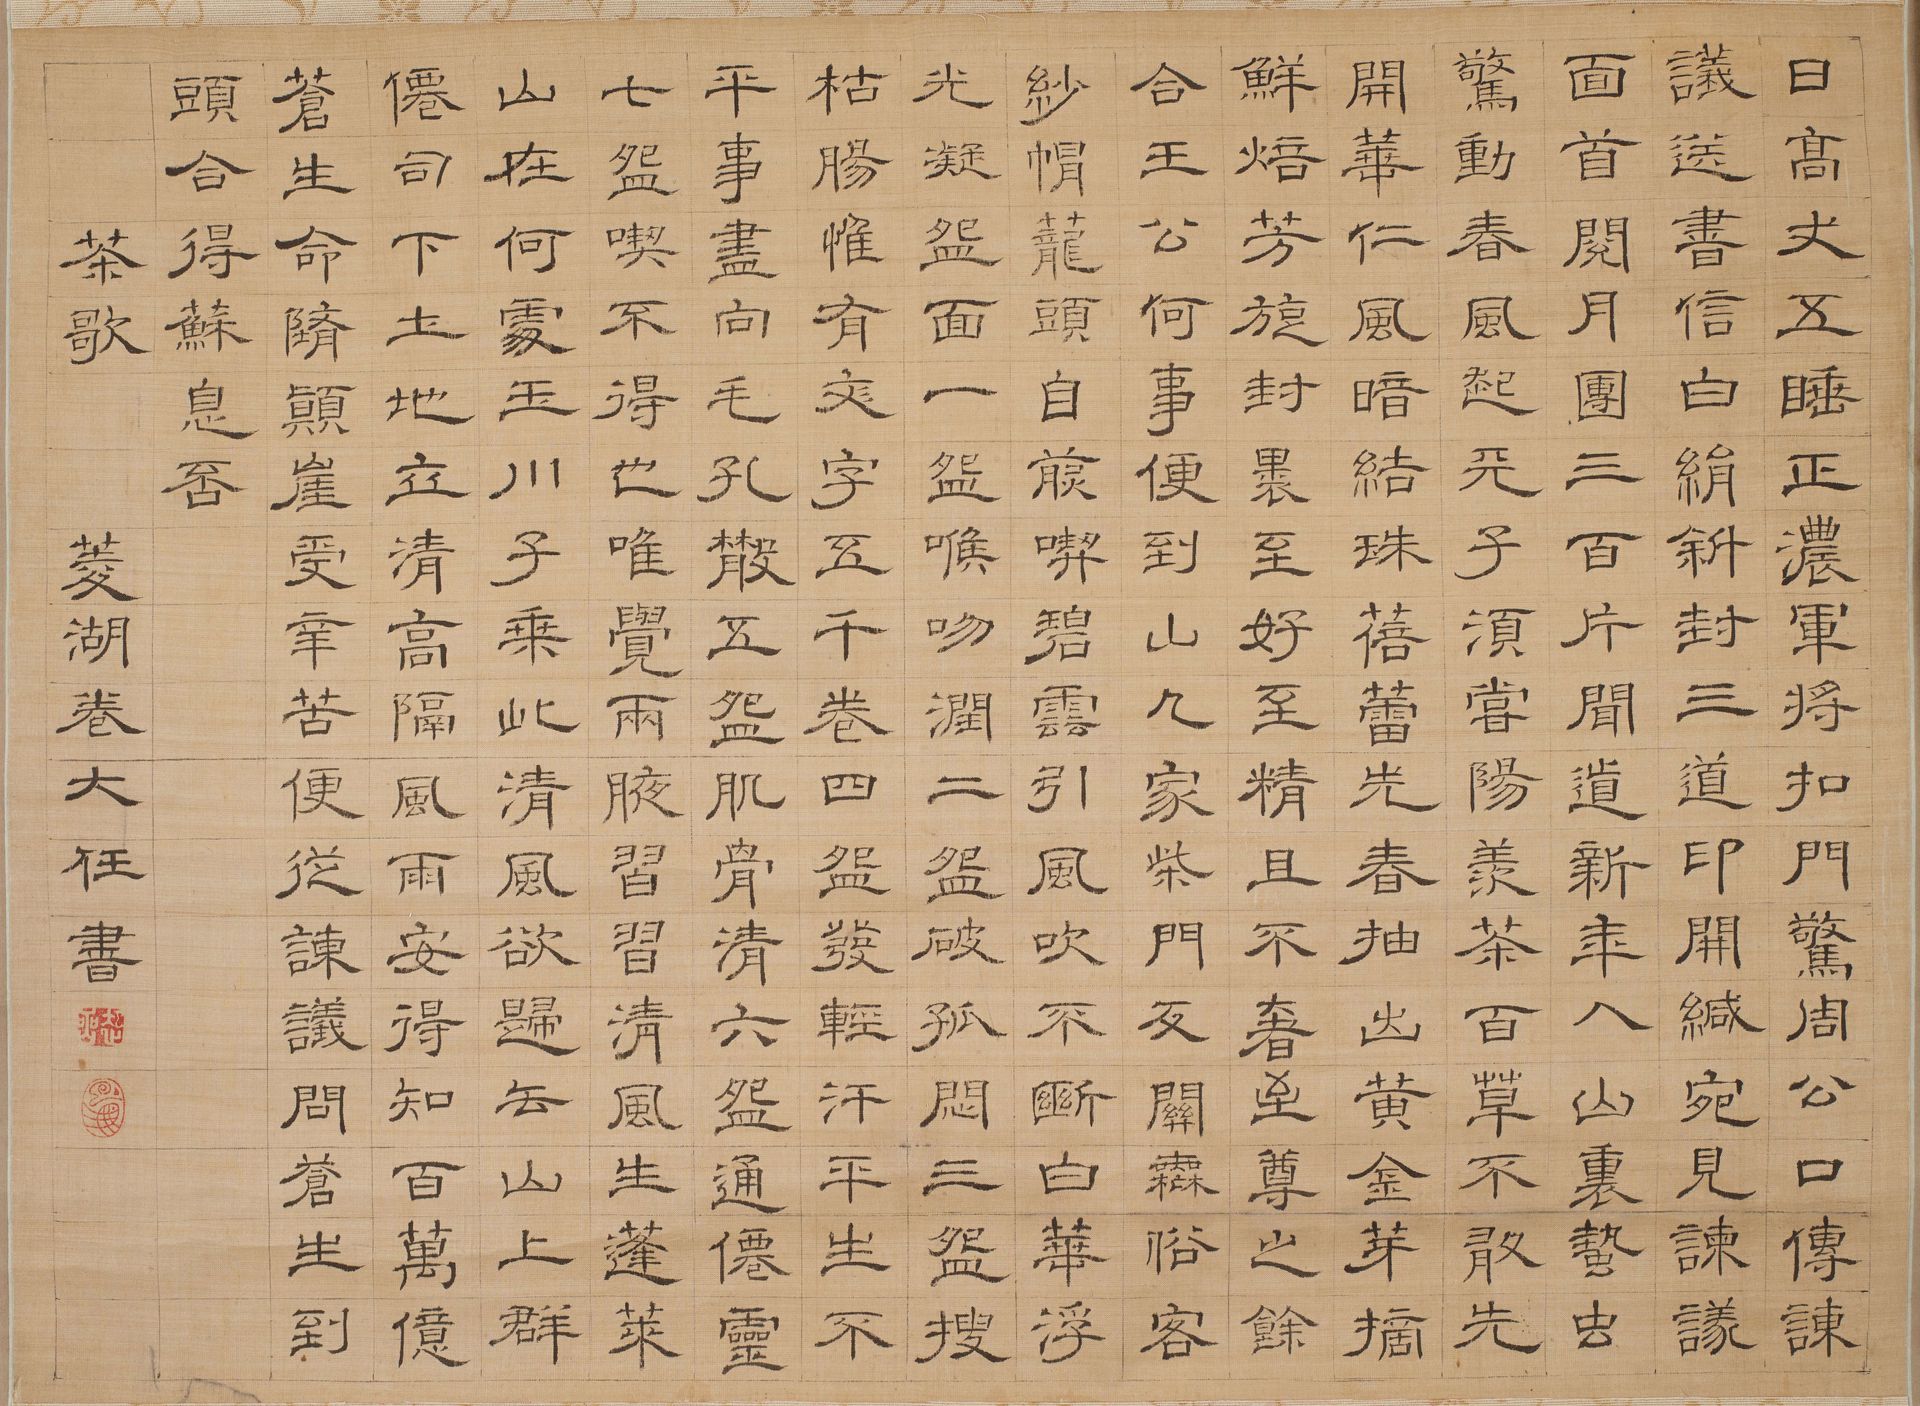 日高丈五睡正濃軍將扣門驚周公口傳諫
議送書信白絹斜封三道印開緘宛見諫議
面首閱月團三百片聞道新年入山裏蟄虫
驚動春風起天子須嘗陽羨茶百草不敢先
開華仁風暗結珠蓓蕾先春抽出黃金芽摘
鮮焙芳旋封裹至好至精且不奢至尊之餘
合王公何事便到山人家柴門反關無俗客
紗帽蘢頭自煎喫碧雲引風吹不斷白華浮
光凝盌面一盌喉吻潤二盌破孤悶三盌搜
枯腸惟有文字五千卷四盌發輕汗平生不
平事盡向毛孔散五盌肌骨清六盌通僊靈
七盌喫不得也唯覺兩腋習習清風生蓬萊
山在何處玉川子乘此清風欲歸去山上群
僊司下土地立清高隔風雨安得知百萬億
蒼生命墮顛崖受辛苦便從諫議問蒼生到
頭合得蘇息否
茶歌 菱湖卷大任書